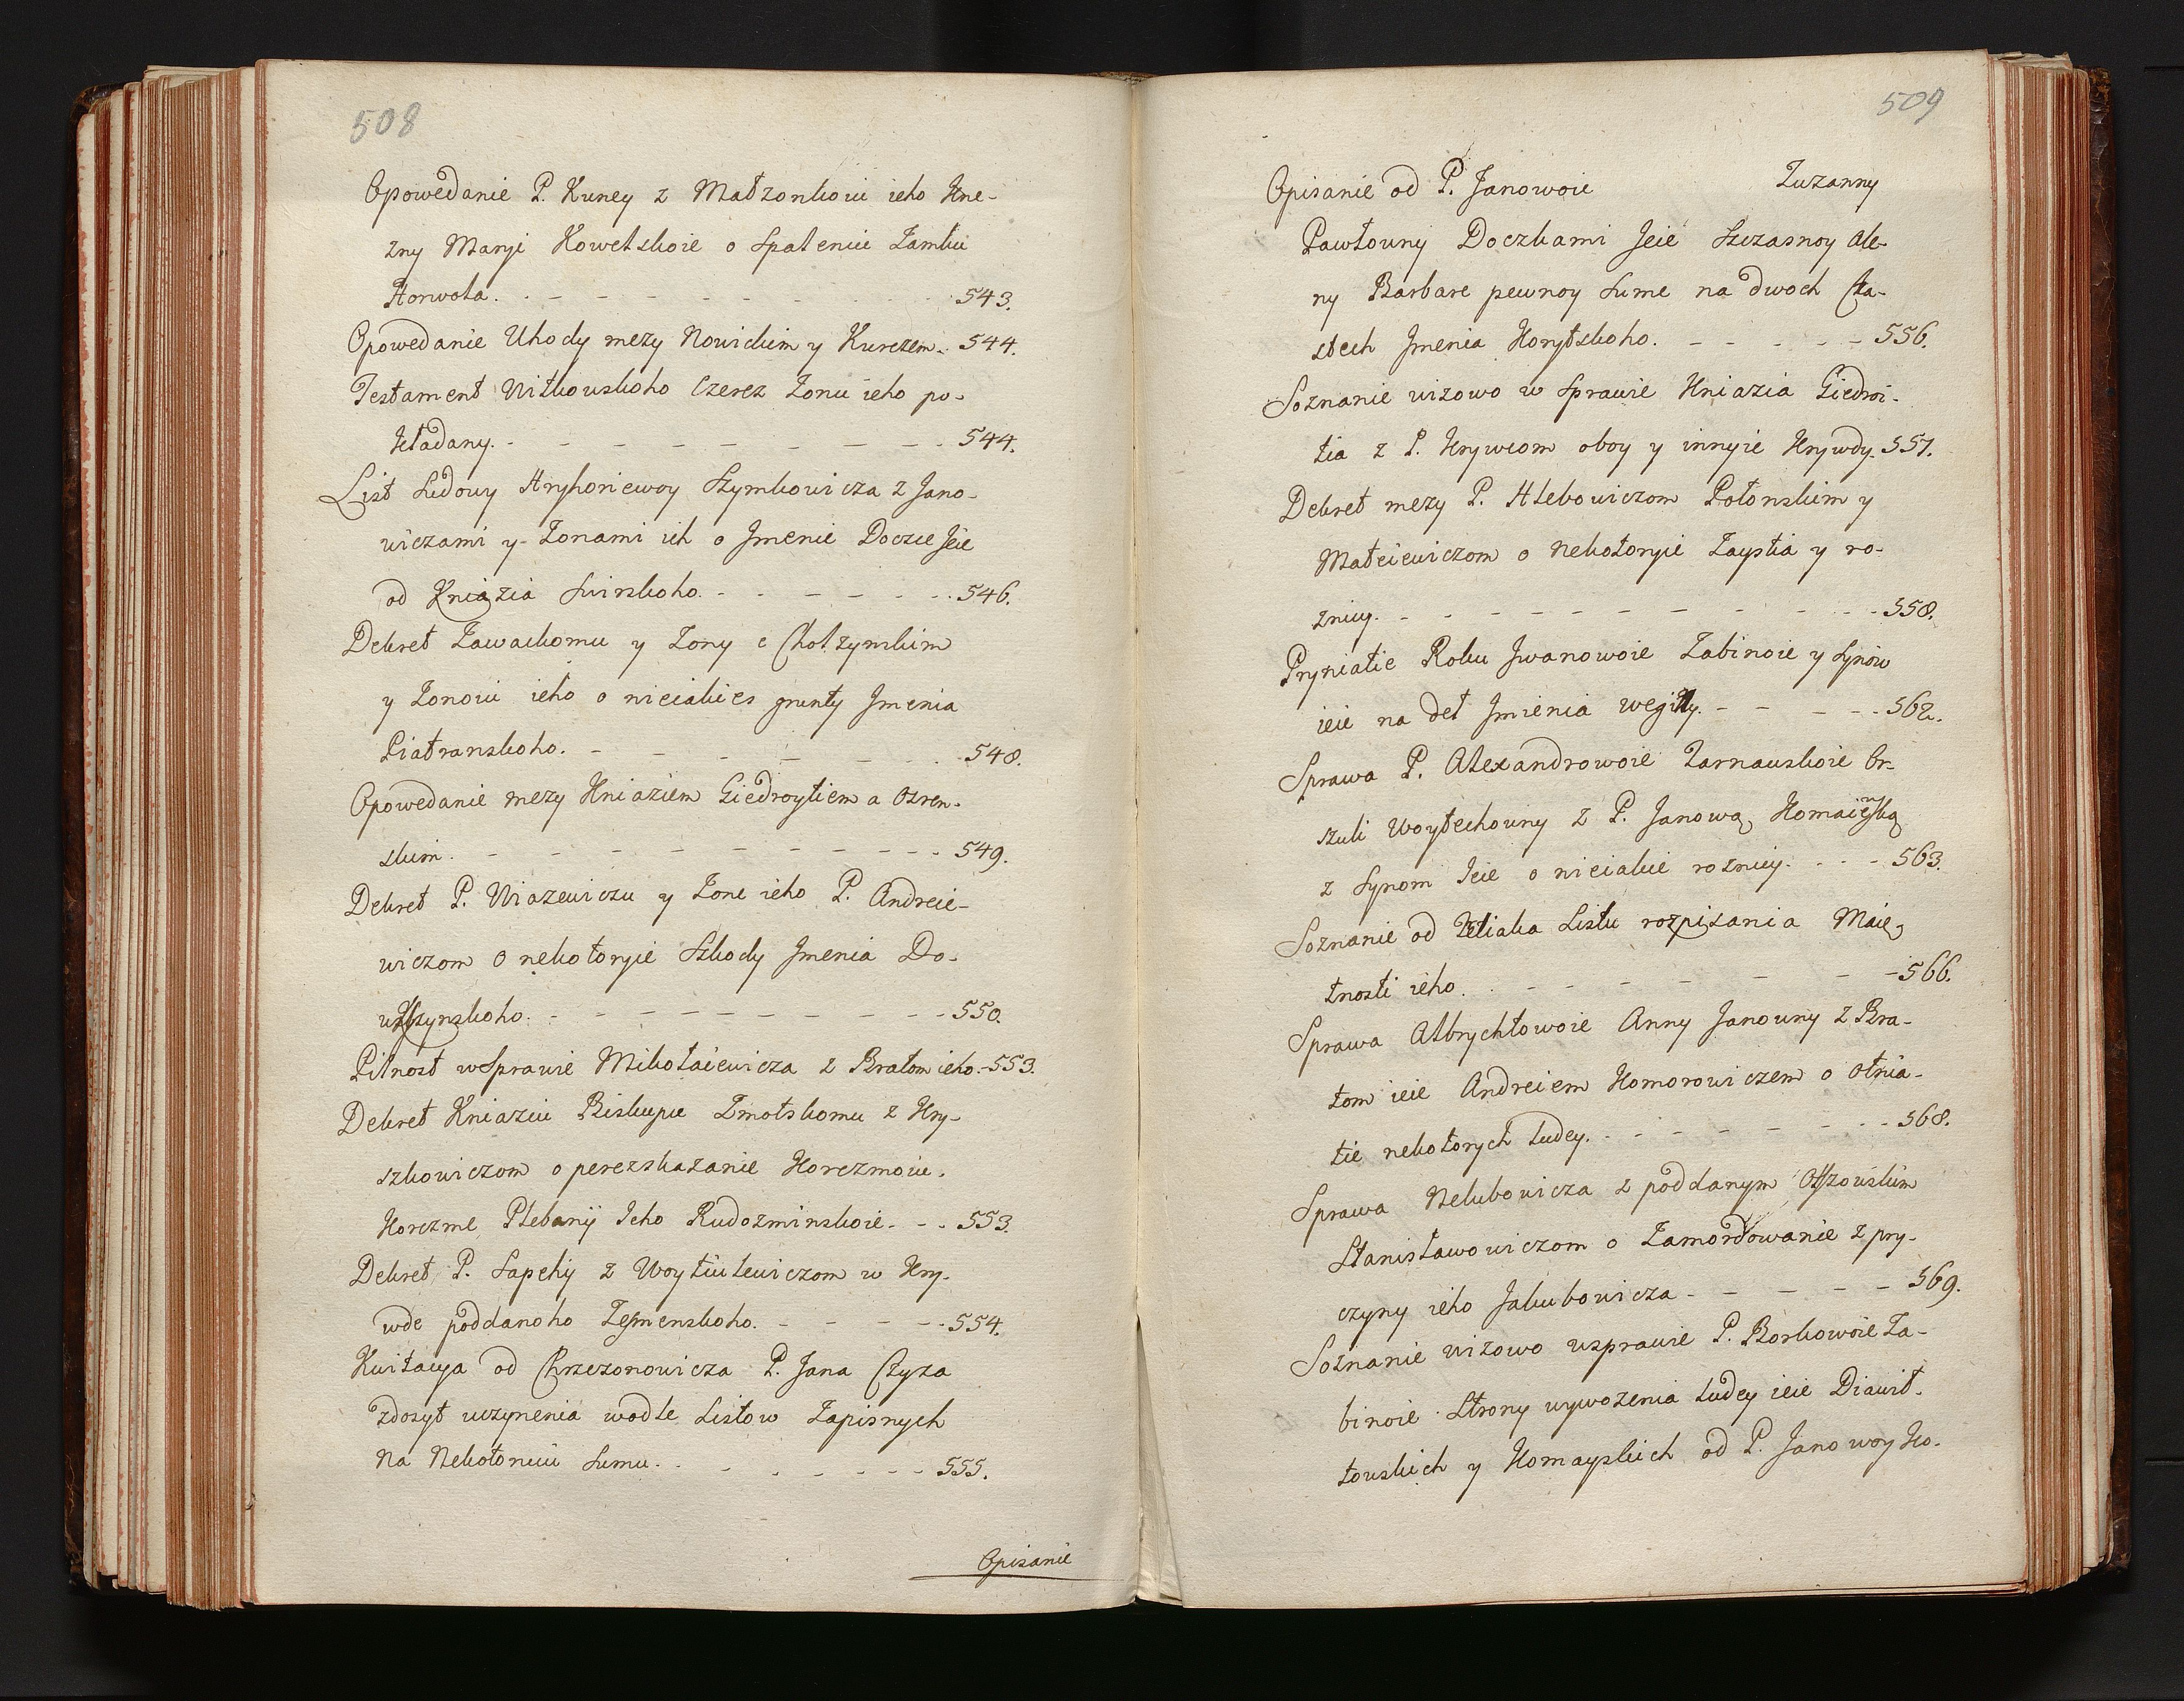 508
Opowedanie P. Kuney z Małzonkoiu ieho Kne-
zny Maryi Kowelskoie o Spaleniie Zamku
Horwola. - - - - - - - - 543.
Opowedanie Uhody mezy Nowickim y Kurczem. 544.
Testament Witkowskoho Czerez Zonu ieho po-
kładany. - - - - - - - - 544.
List Sudowy Hryhoriewoy Szymkowicza z Jano-
wiczami y Zonami ich o Jmenie Doczce Jeie
od Kniązia Swirskoho. - - - - - - 546.
Dekret Zawackomu y Zony z Chołzymskim
y Zonoiu ieho o nieiakies grunty Jmenia
Piatranskoho. - - - - - - 548.
Opowedanie mezy Kniaziem Giedroytiem a Ozren-
skim. - - - - - - - - - 549.
Dekret P. Wiazewiczu y Zone ieho P. Andreie-
wiczom o nekotoryie Szkody Jmenia Do-
- - - - - - - - - 550.
Pilnost w Sprawie Mikołaiewicza z Bratom ieho. - 553.
Dekret Kniaziu Biskupu Zmotskomu z Hry-
szkowiczom o perezskazanie Horczmoiu.
Korczme Plebanij Jeho Rudozminskoie. - - - 553.
Dekret P. Sapehy z Woytiulewiczom w Kry-
wde poddanoho Zesmenskoho. - - - - - 554.
Kwitacya od Chrzczonowicza P. Jana Czyza
zdosyt uczynenia wodle Listow Zapisnych
Na Nekotoruiu Sumu. - - - - - - 555.
Opisanie
509
Opisanie od P. Janowoie Zuzanny
Pawłowny Doczkami Jeie Szczasnoy Ale-
ny Barbare pewnoy Sume na dwoch Cza-
stech Jmenia Korytskoho. - - - - - 556.
Soznanie wizowo w Sprawie Kniazia Giedroi-
tia z P. Hrywcom oboy y innyie Krywdy. 557.
Dekret mezy P. Hlebowiczom Połonskim y
Mateiewiczom o Nekotoryie Zaystia y ro-
znicy. - - - - - - - - - - 558.
Pryniatie Roku Jwanowoie Zabinoie y Synow
ieie na deł Jmienia - - - - - 562.
Sprawa P. Alexandrowoie Tarnawskoie Or-
szuli Woytechowny z P. Janową Komaiewską
z Synom Jeie o nieiakie roznicy. - - - 563.
Soznanie od Listu rozpisania Maię-
tnosti ieho. - - - - - - 566.
Sprawa Albrychtowoie Anny Janowny z Bra-
tom ieie Andreiem Komorowiczem o otnia-
tie nekotorych ludey. - - - - - - - 568.
Sprawa Nelubowicza z poddanym
Stanisławowiczom o Zamordowanie z pry-
czyny ieho Jakubowicza - - - - - 569.
Soznanie wizowo wsprawie P. Borkowoie Za-
binoie Strony wywozenia ludey ieie Diawił-
towskich y Komayskich od P. Janowoy Ko-